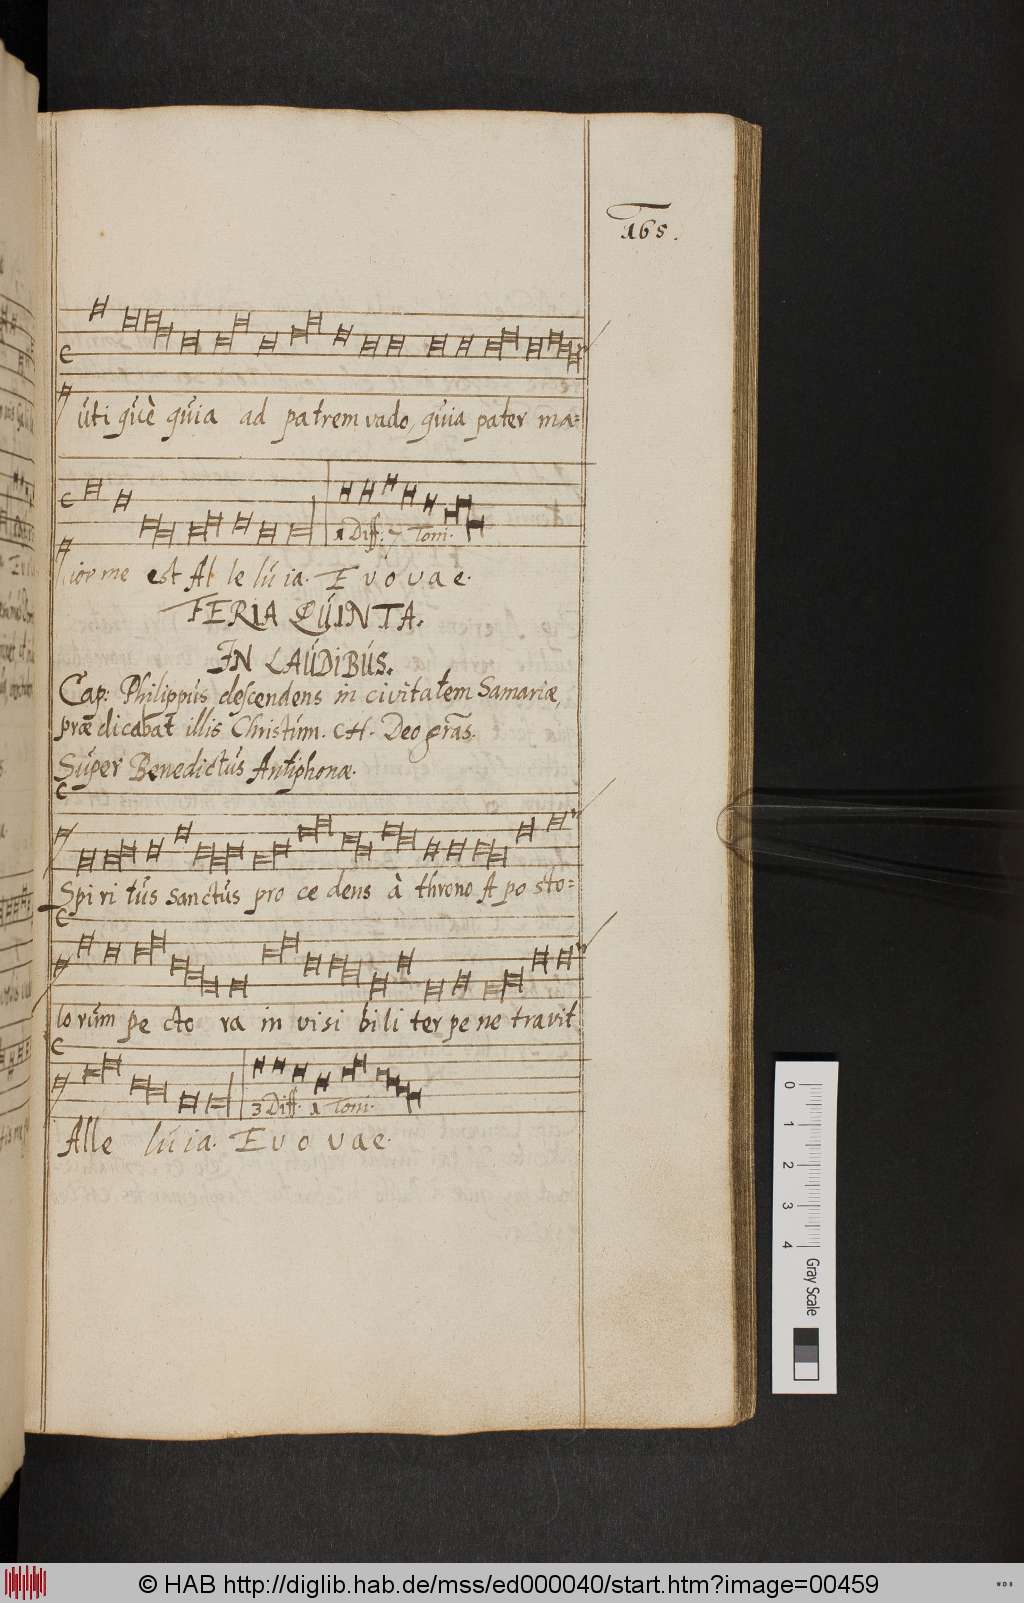 165.
uti què quia ad patrem vado, quia pater ma=
1 Diff: 7 Toni.
ior me est Al le lu ia. E v o v a e.
FERIA QUINTA.
IN LAUDIBUS.
Cap: Philippus descendens in civitatem Samariæ,
prædicabat illis Christum. CH. Deo gras.
Super Benedictus Antiphonæ.
Spi ri tus sanctus pro ce dens à throno A po sto=
lo rum pe cto ra in visi bi li ter pe ne travit
3 Diff. 1 Toni.
Alle lu ia. E v o v a e.
0
1
2
3
4
Gray Scale
© HAB http://diglib.hab.de/mss/ed000040/start.htm?image=00459